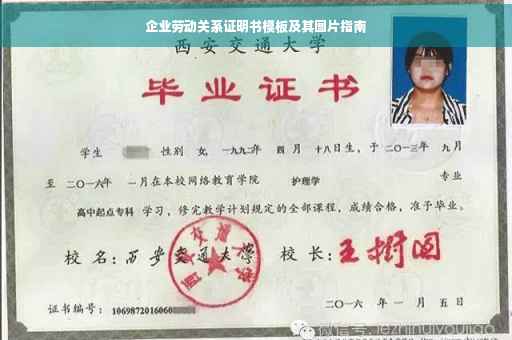 企业劳动关系证明书模板及其图片指南
西安交通大学
毕业证书
学生 性别 女, 一九九二年 四月 十八日生, 于二〇一三年 九月
至二〇一六年 一月在本校网络教育学院 护理学 专业
高中起点专科 学习, 修完教学计划规定的全部课程, 成绩合格, 准予毕业。
校名: 西安交通大学 校长: 王树国
西安交通大学
证书编号: 1069872016060
二〇一六年 一月五日
微信号: lezhihuiyoujiao